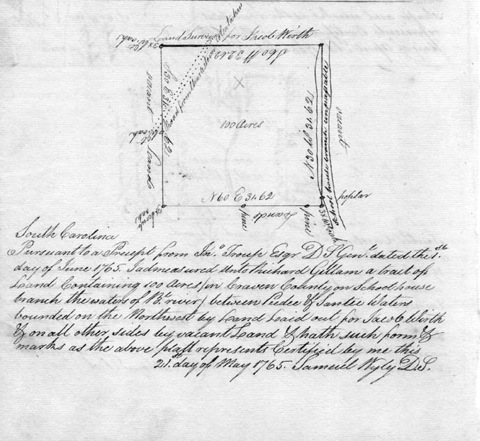 Land Surveyed for Jacob Wirth
S 60 W 32.12
100 Acres
vacant
vacant Land
N 30 W 31.62
N 60 E 31.62
poplar
pine
pine
South Carolina
Pursuant to a Precept from Jno. Troup Esqr D S Genl. dated the 1st
day of June 1765. I admeasured unto Richard Gillam a tract of
Land Containing 100 Acres in Craven County on School house
branch the waters of Bd. river / between Pedee & Santee Waters
bounded on the Northwest by Land Laid out for Jacob Wirth
& on all other sides by vacant Land & hath such form &
marks as the above platt represents Certified by me this
21. day of May 1765. Samuel Wyly D. S.